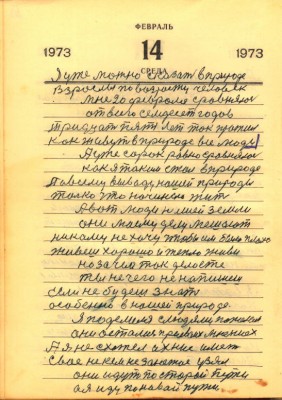 ФЕВРАЛЬ
1973 14 1973
СРЕДА
Я уже можно сказат в природе
Взрослы по возрасту человек
Мне 20 февраля сравнялос
от всего семдесет годов
Тридцать пят лет так прожил
как живут в природе все люди
А уже сорок равно сравнялос
как я таким стал в природе
По всему выводу нашей природы
толко что начинаю жит
А вот люди на ней земли
они моему делу мешают
никому не хочу чтоби им было плохо
живеш хорошо и тепло живи
но за что так делоете
ты ничего не напишеш
если не будеш знат
особенно в нашей природе.
Я поделился с людями
они остались при
А я не схотел их них имет
Свае не кем не занятое узял
они идут по старой пути
а я иду по новой пути.